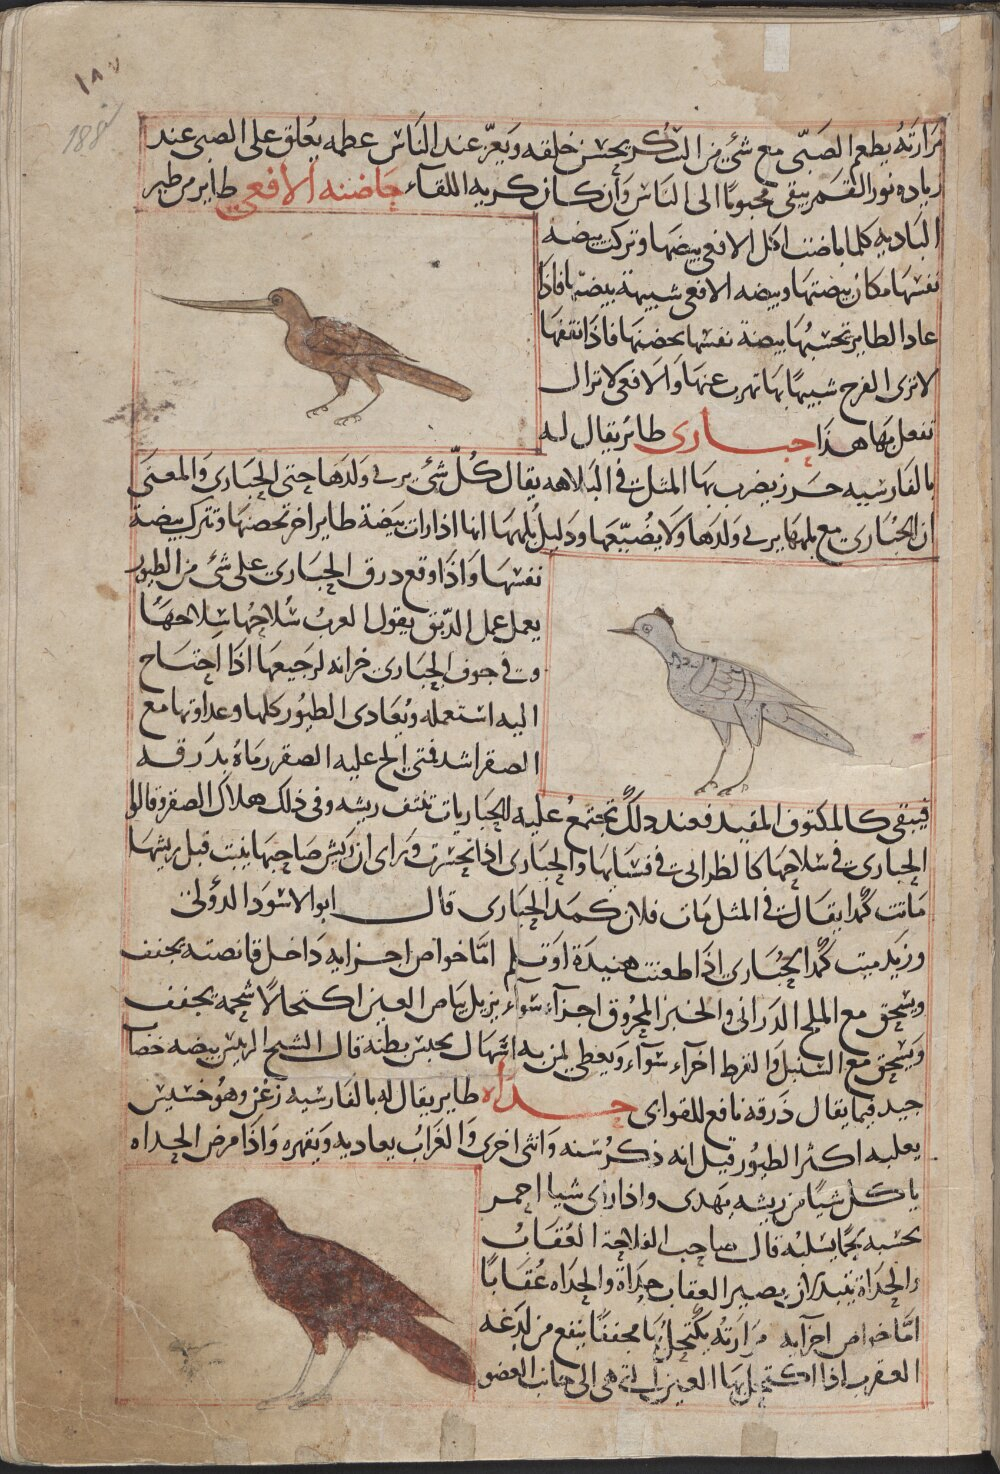 ١٨٧
188
مرارته يطعم الصبى مع شئ من السكر يحسن خلقه ويعز عند الناس عظمه يعلق على الصبى عند
زياده نور القمر يبقى محبوبا الى الناس وان كان كريه اللقاء حاضنه الافعى طاير من طير
البادية كلما باضت اكل الافعى بيضها وتركت بيضه
نفسها مكان بيضتها وبيضه الافعى شبيهة ببيضها فاذا
عاد الطاير تحسبها بيضة نفسها يحضنها فاذا نقفها
لا ترى الفرخ شبيها بها تهرب عنها والافعى لا تزال
تفعل بها هذا حبارى طائر يقال له
بالفارسيه حرز يضرب بها المثل فى البلاهه يقال كل شئ يربى ولدها حتى الحبارى والمعنى
ان الحبارى مع بلهها يربى ولدها ولا يضيعها ودليل بلهها انها اذا رات بيضة طاير اخر تحضنها وتترك بيضة
نفسها واذا وقع درق الحبارى على شئ من الطيور
يعمل عمل الدبق يقول العرب سلاحها سلاحها
وفى جوف الحبارى خزانه لرجيعها اذا احتاج
اليه استعمله ويعادى الطيور كلها وعداوتها مع
الصقر اشد فمتى الح عليه الصقر رماه بدرقه
فيبقى كالمكتوف المقيد فعند ذلك تجتمع عليه الحباريات تنتف ريشه وفى ذلك هلاك الصقر وقالوا
الحبارى فى سلاحها كالظرابى فى فسايها والحبارى اذا تحسرت وراى ان ريش صاحبها ينبت قبل ريشها
ماتت كمدا يقال فى المثل مات فلان كمد الحبارى قال ابو الاسود الدؤلى
وزيد ميت كمد الحبارى اذا طعنت هنيدة او تلم اما خواص اجزايه داخل قانصته يجفف
ويسحق مع الملح الدرانى والخبز المحروق اجزاء سواء يزيل بياض العين اكتحالا شحمه يجفف
ويسحق مع السنبل والقرط اجزاء سواء ويعطى لمن به اسهال يحبس بطنه قال الشيخ الرييس بيضه خضاب
جيد فيما يقال ذرقه نافع للقوابى حداه طاير يقال له بالفارسيه زغن وهو خسيس
يعلبه اكثر الطيور قيل انه ذكر سنه وانثى اخرى والغراب يعاديه ويقهره واذا مرض الحداه
ياكل شيا من ريشه يهدى واذا راى شيا احمر
يحسبه لحما يسلبه قال صاحب الفلاحة العقاب
والحداة يتبدلان يصير العقاب حداة والحداه عقابا
اما خواص اجزايه مرارته يكتحل بها مجففا ينفع من لدغه
العقرب اذا اكتحل بها العين التى هى الى جانب العضو